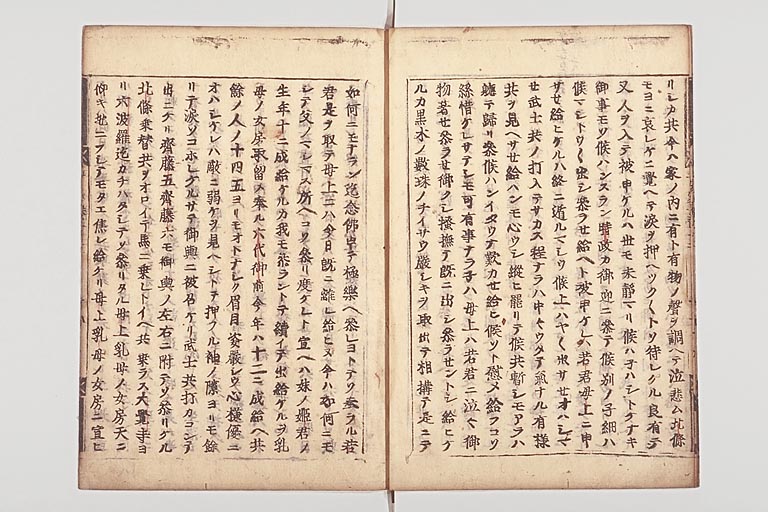 リシカ共今ハ家ノ内ニ有ト有物ノ聲ヲ調ヘテ泣悲ム北條
モヨニ哀レケニ覺ヘテ涙ヲ押ヘツクヽト待レケル良有テ
又人ヲ入テ被申ケルハ世モ未静マリ候ハ子ハシトケナキ
御事モソ候ハンスラン時政カ御迎ニ参テ候別ノ子細ハ
候マシトウヽ出シ参ラセ給ヘト被申ケレハ若君母上ニ申
サセ給ヒケルハ終ニ遁ルマシウ候上ハハヤヽ出サセオハシマ
セ武士共ノ打入テサカス程ナラハ中々ウタテ氣ナル有様
共ヲ見ヘサセ給ハンモ心ウシ縦ヒ罷リテ候共暫シモアラハ
聴テ歸リ参候ハンイタクナ歎カセ給ヒ候ソト慰メ給フコソ
絲惜ケレサテシモ可有事ナラ子ハ母上ハ若君ニ泣々御
物著セ参ラセ御クシ掻撫テ既ニ出シ参ラセントシ給ヒケ
ルカ黒木ノ數珠ノチイサウ嚴シキヲ取出テ相構テ是ニテ
如何ニモナラン迄念佛申テ極樂ヘ参レヨトテソ奉ラル若
君是ヲ取テ母上ニハ今日既ニ離レ給ヒヌ今ハ如何ニモ
シテ父ノマシマス所ヘコソ参リ度ケレト宣ヘハ妹ノ姫君ノ
生年十ニ成給ケルカ我モ参ラントテ續イテ出給ケルヲ乳
母ノ女房取留メ奉ル六代御前今年ハ十二ニ成給ヘ共
餘ノ人ノ十四五ヨリモオトナシク眉目姿嚴シウ心様優ニ
オハシケレハ敵ニ弱ケヲ見ヘシトテ押フル袖ノ隙ヨリモ餘
リテ涙ソコホレケルサテ御輿ニ被召ケリ武士共打カコンテ
出ニケリ齊藤五齊藤六モ御輿ノ左右ニ附テソ参リケル
北條乗替共ヲオロイテ馬ニ乗レトイヘ共乗ラス大覺寺ヨ
リ六波羅迄カチハタシテソ参リタル母上乳母ノ女房天ニ
仰キ地ニフシテモタエ焦レ給ケリ母上乳母ノ女房ニ宣ヒ